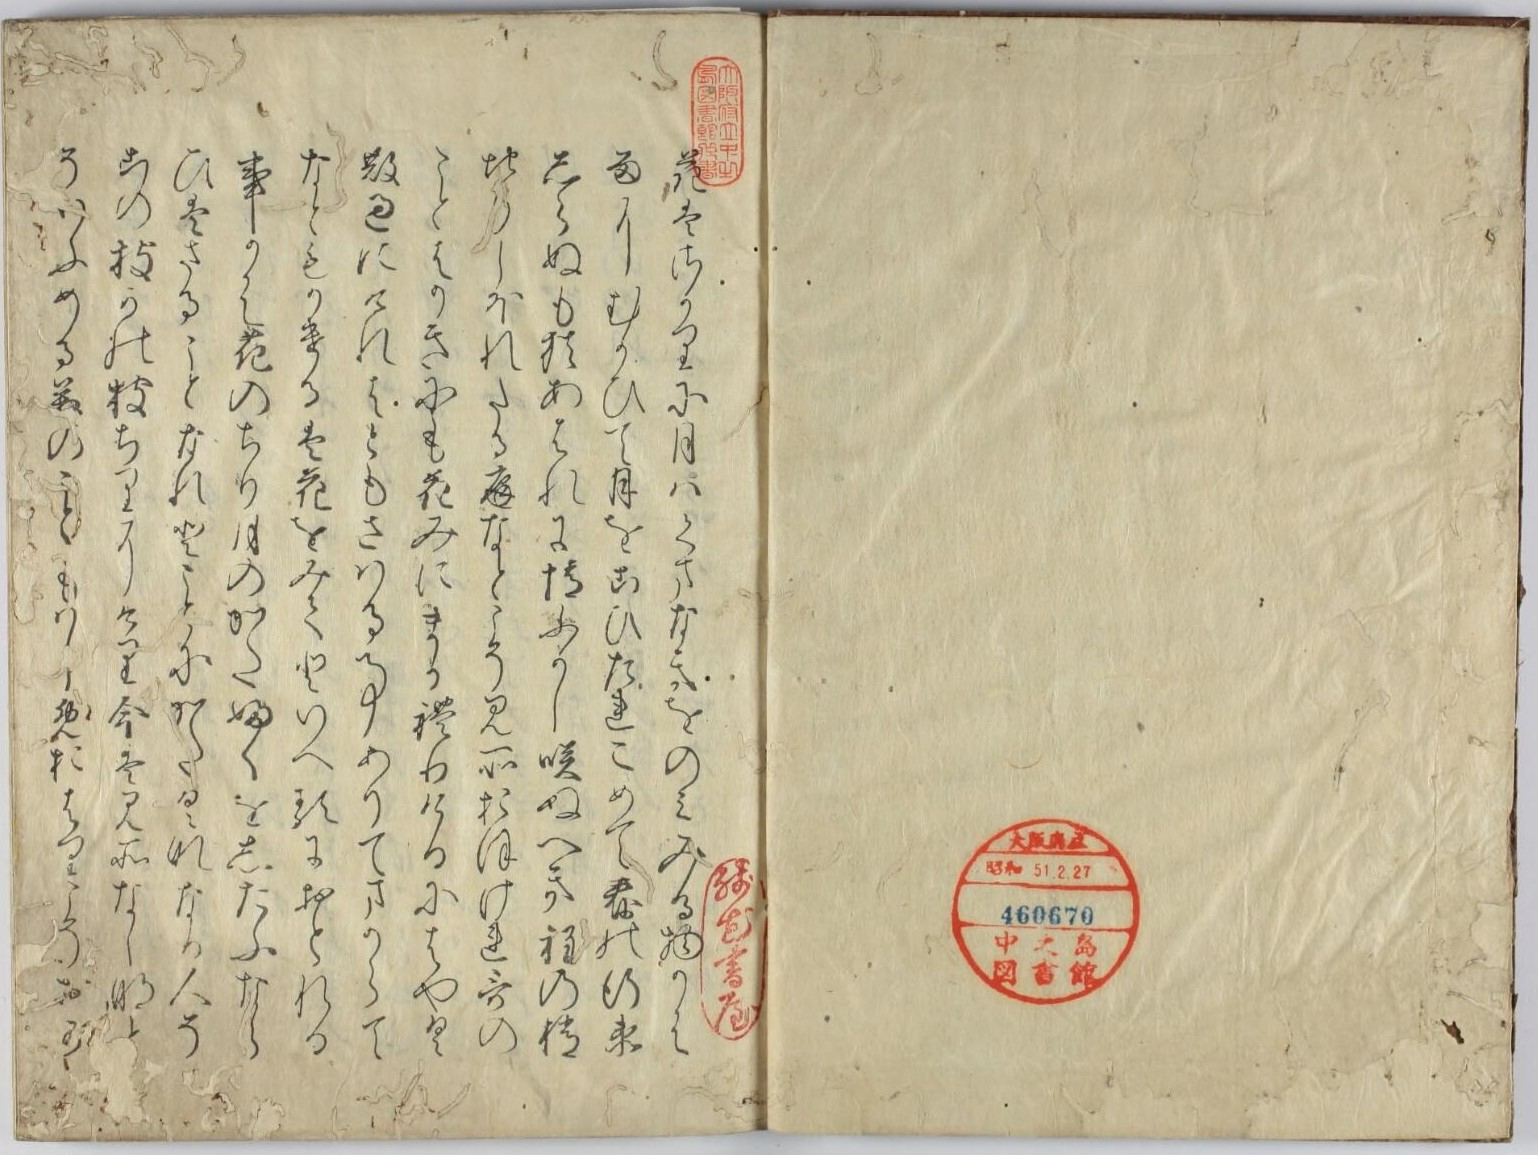 花はさかりに月はくまなきをのみみる物かは
雨にむかひて月をこひたれこめて春の行衛
しらぬも猶あはれに情ふかし咲ぬへき程の梢
ちりしほれたる庭なとこそ見所おほけれ哥の
ことはかきにも花みにまかれりけるにはやく
散過にけれはともさはる事ありてまからて
なともかけるは花をみてといへるにおとれる
事かは花のちり月のかたふくをしたふなら
ひはさることなれとことにかたくななる人そ
この枝かの枝ちりにけり今は見所なしなと
はいふめる
大阪府立中之島図書館蔵書
大阪府立
昭和 51.2.27
460670
中之島
図書館